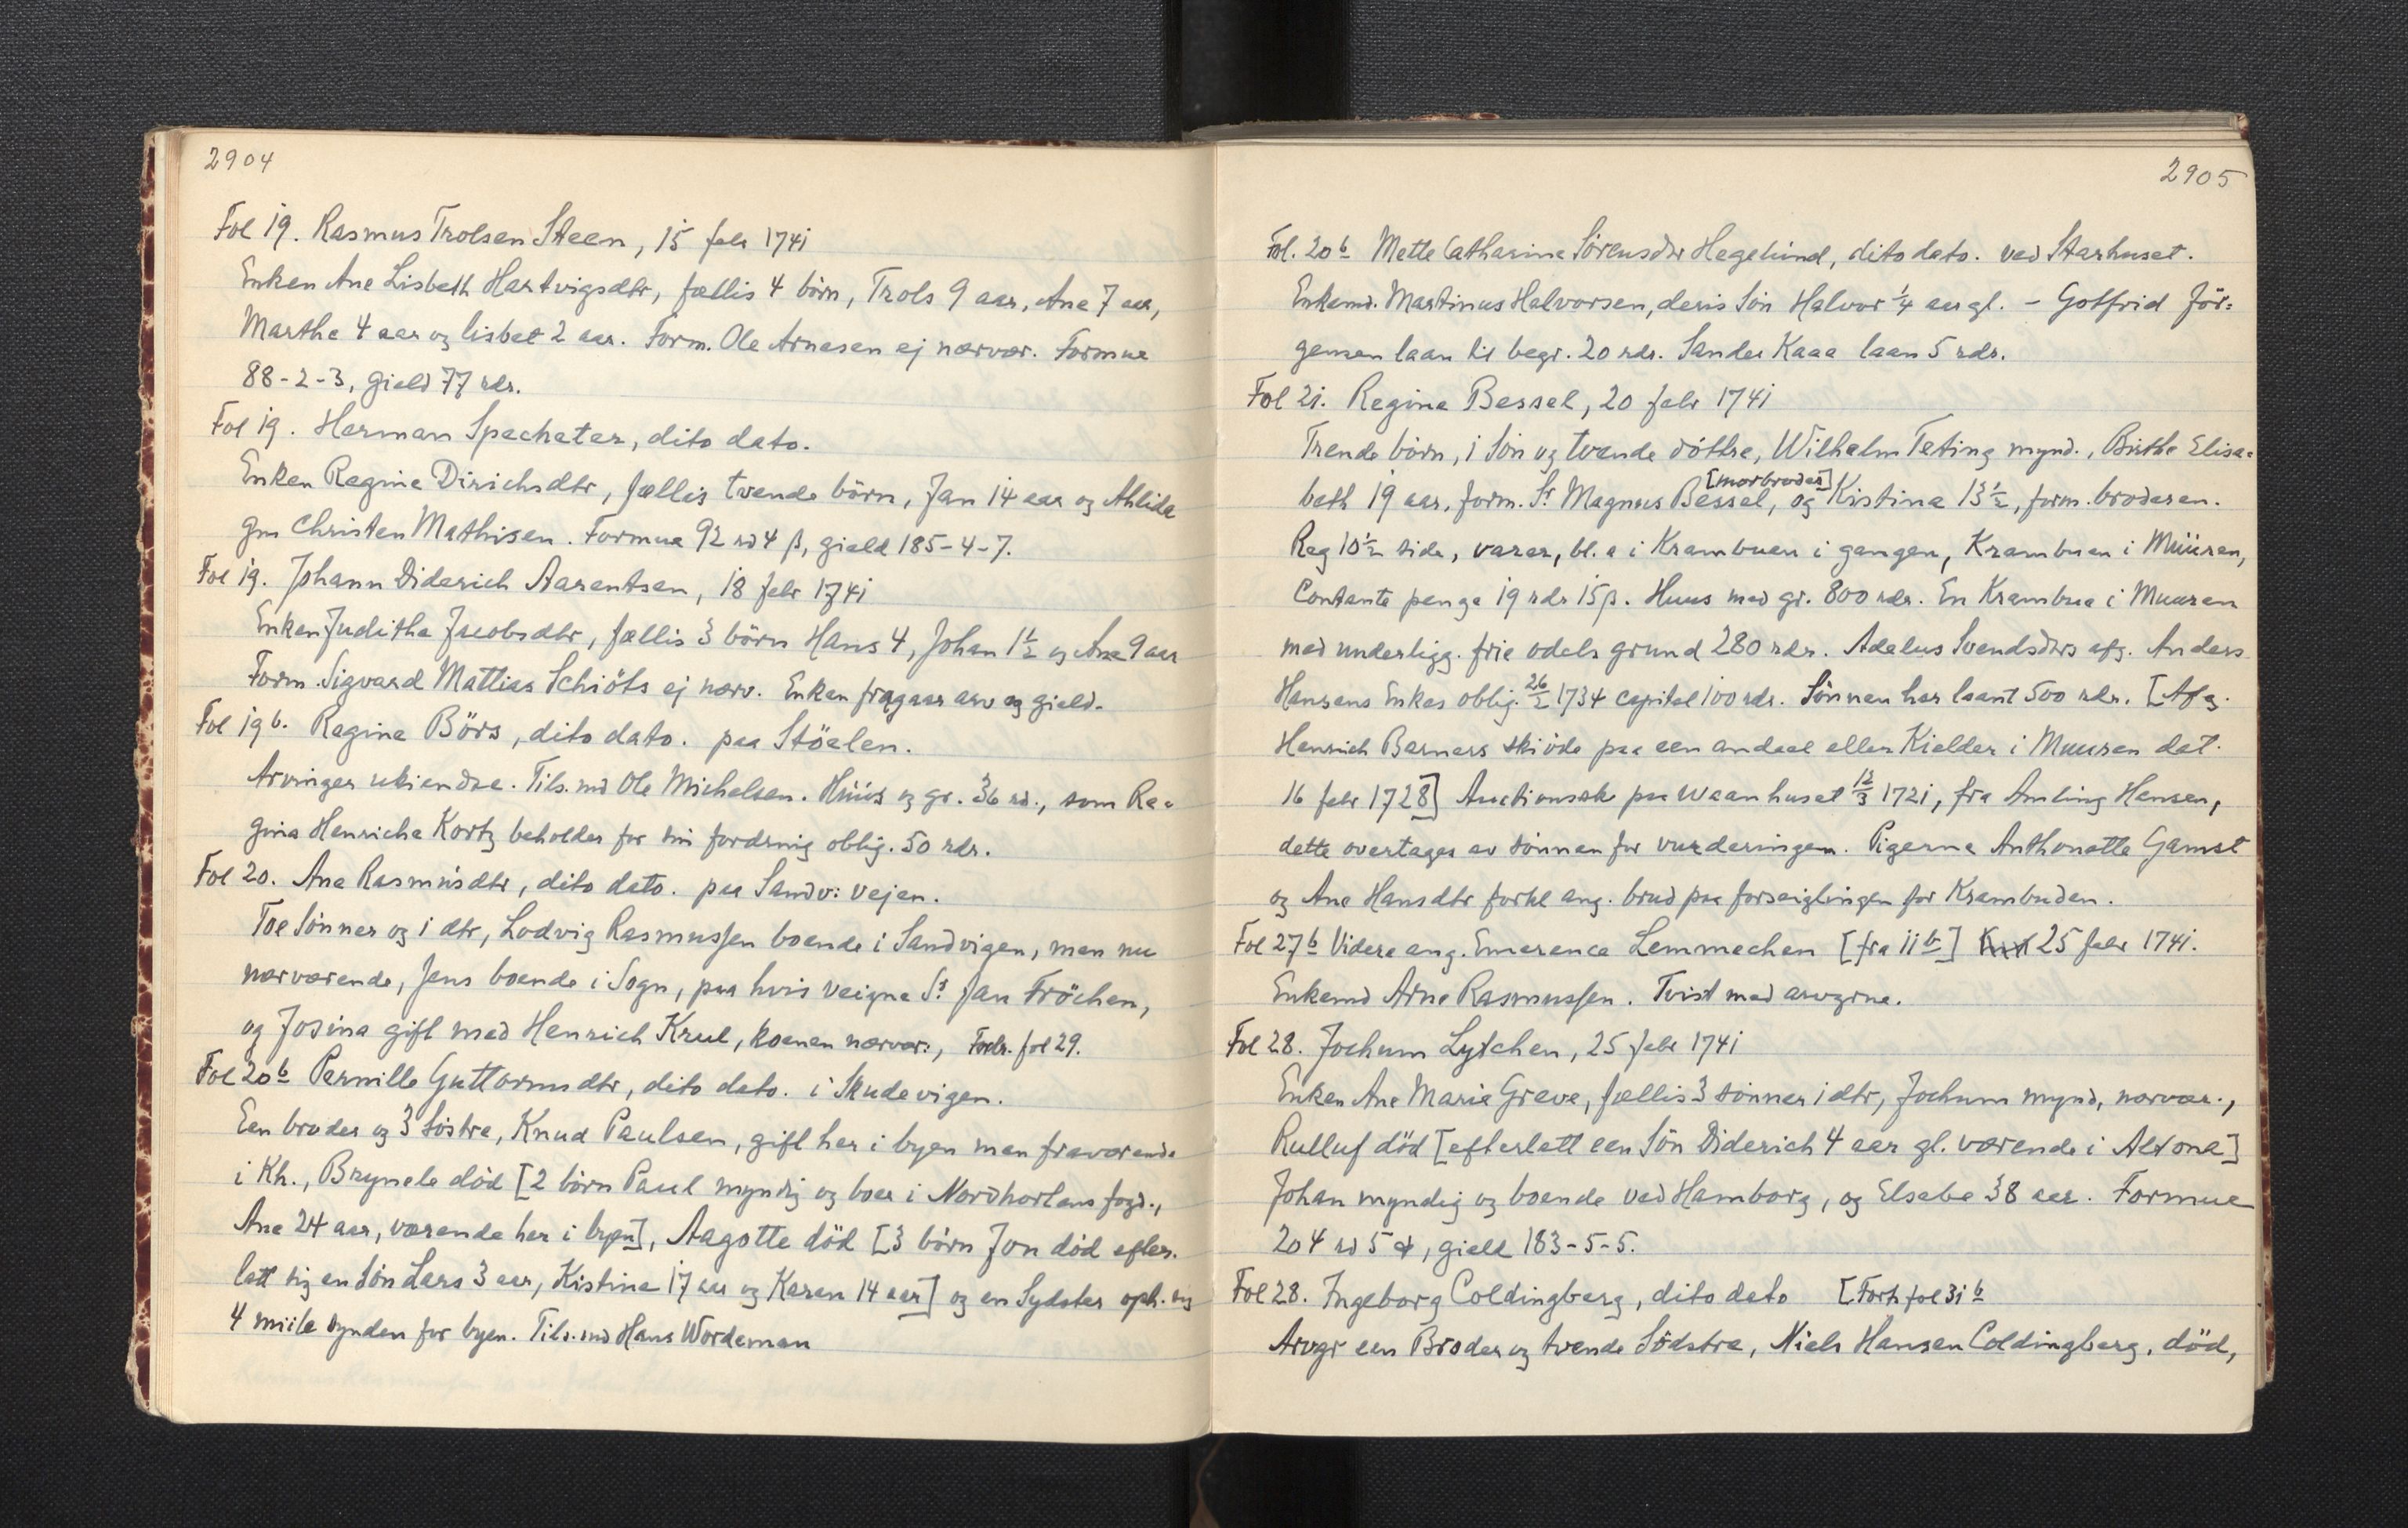 2904
Fol 19. Rasmus Trolsen Steen, 15 febr 1741
Enken Ane Lisbeth Hartvigsdtr, fællis 4 börn, Trols 9 aar, Ane 7 aar,
Marthe 4 aar og lisbet 2 aar. Form. Ole Arnesen ej nærvær. Formue
88-2-3, gield 77 rdr.
Fol 19. Herman Spechater, dito dato.
Enken Regine Dirichsdtr, fællis tvende börn, Jan 14 aar og Ahlida
gm Christen Mathisen. Formue 92 rd 4 β, gield 185-4-7.
Fol 19. Johann Diderich Aarentsen, 18 febr 1741
Enken Juditha Jacobsdtr, fællis 3 börn Hans 4, Johan 1½ og Ane 9 aar
Form. Sigvard Mattias Schiöts ej nærv. Enken fragaar arv og gield.
Fol 19b. Regine Börs, dito dato. paa Stöelen.
Arvinger ukiendte. Tils.md Ole Michelsen. Hüus og gr. 36 rd., som Re=
gina Henriche Kortz beholder for sin fordring oblig. 50 rdr.
Fol 20. Ane Rasmusdtr, dito dato. paa Sandv: vejen.
Toe Sönner og 1 dtr, Lodvig Rasmussen boende i Sandvigen, men nu
nærværende, Jens boende i Sogn, paa hvis veigne Sr Jan Fröchen,
og Josina gift med Henrich Krul, konen nærvær:, Forts. fol 29.
Fol 20b Pernille Guttormsdtr, dito dato. i Skudevigen.
Een broder og 3 Söstre, Knud Paulsen, gift her i byen men fraværende
i Kh., Brynele död [2 börn Paul myndig og boer i Nordhorlens fogd.,
Ane 24 aar, værende her i byen], Aagotte död [3 börn Jon död efter.
latt sig en Sön Lars 3 aar, Kistina 17 aar og Karen 14 aar] og en Sydster oph. sig
4 miile synden for byen. Tils.md Hans Wordeman
2905
Fol. 20b Mette Catharina Sörensdtr Hegelund, dito dato. ved Starhuset.
Enkemd. Martinus Halvorsen, deris Sön Halvor ¼ aar gl. - Gotfrid Jör=
gensen laan til begr. 20 rdr. Sander Kaaa laan 5 rdr.
Fol 21. Regine Bessel, 20 febr 1741
Trende börn, 1 Sön og tvende döttre, Wilhelm Teting mynd., Birthe Elisa=
beth 19 aar, form. Sr Magnus Bessel, [morbroder] og Kistina 13½, form. broderen.
Reg 10½ side, varer, bl.a i Krambuen i gangen, Krambuen i Müüren,
Contante penge 19 rdr 15β. Huus med gr. 800 rdr. En Krambue i Muuren
med underligg. frie odels grund 280 rdr. Adelus Svendsdtrs afg. Anders
Hansens Enkes oblig. 26/2 1734 capital 100 rdr. Sönnen har laant 500 rdr. [Afg.
Henrich Berners skiöde paa een andeel eller Kielder i Muuren dat.
16 febr 1728] Auctionssk paa Waanhuset 13/3 1721, fra Amling Hansen,
dette overtages av sönnen for vurderingen. Pigerne Anthonette Gamst
og Ane Hansdtr forkl ang. brud paa forseiglingen for Krambuden.
Fol 27b Videre ang. Emerence Lemmechen [fra 11b] 25 febr 1741.
Enkemd Arne Rasmussen. Tvist med arvgrne.
Fol 28. Jochum Lytchen, 25 febr 1741
Enken Ane Marie Greve, fællis 3 sönner 1 dtr, Jochum mynd, nærvær.,
Rulluf död [efterlatt een Sön Diderich 4 aar gl. værende i Altona]
Johan myndig og boende ved Hamborg, og Elsebe 38 aar. Formue
204 rd 5 ꝸ, gield 183-5-5.
Fol 28. Ingeborg Coldingberg, dito dato [Forts fol 31b
Arvgr een Broder og tvende Södstre, Niels Hansen Coldingberg, död,